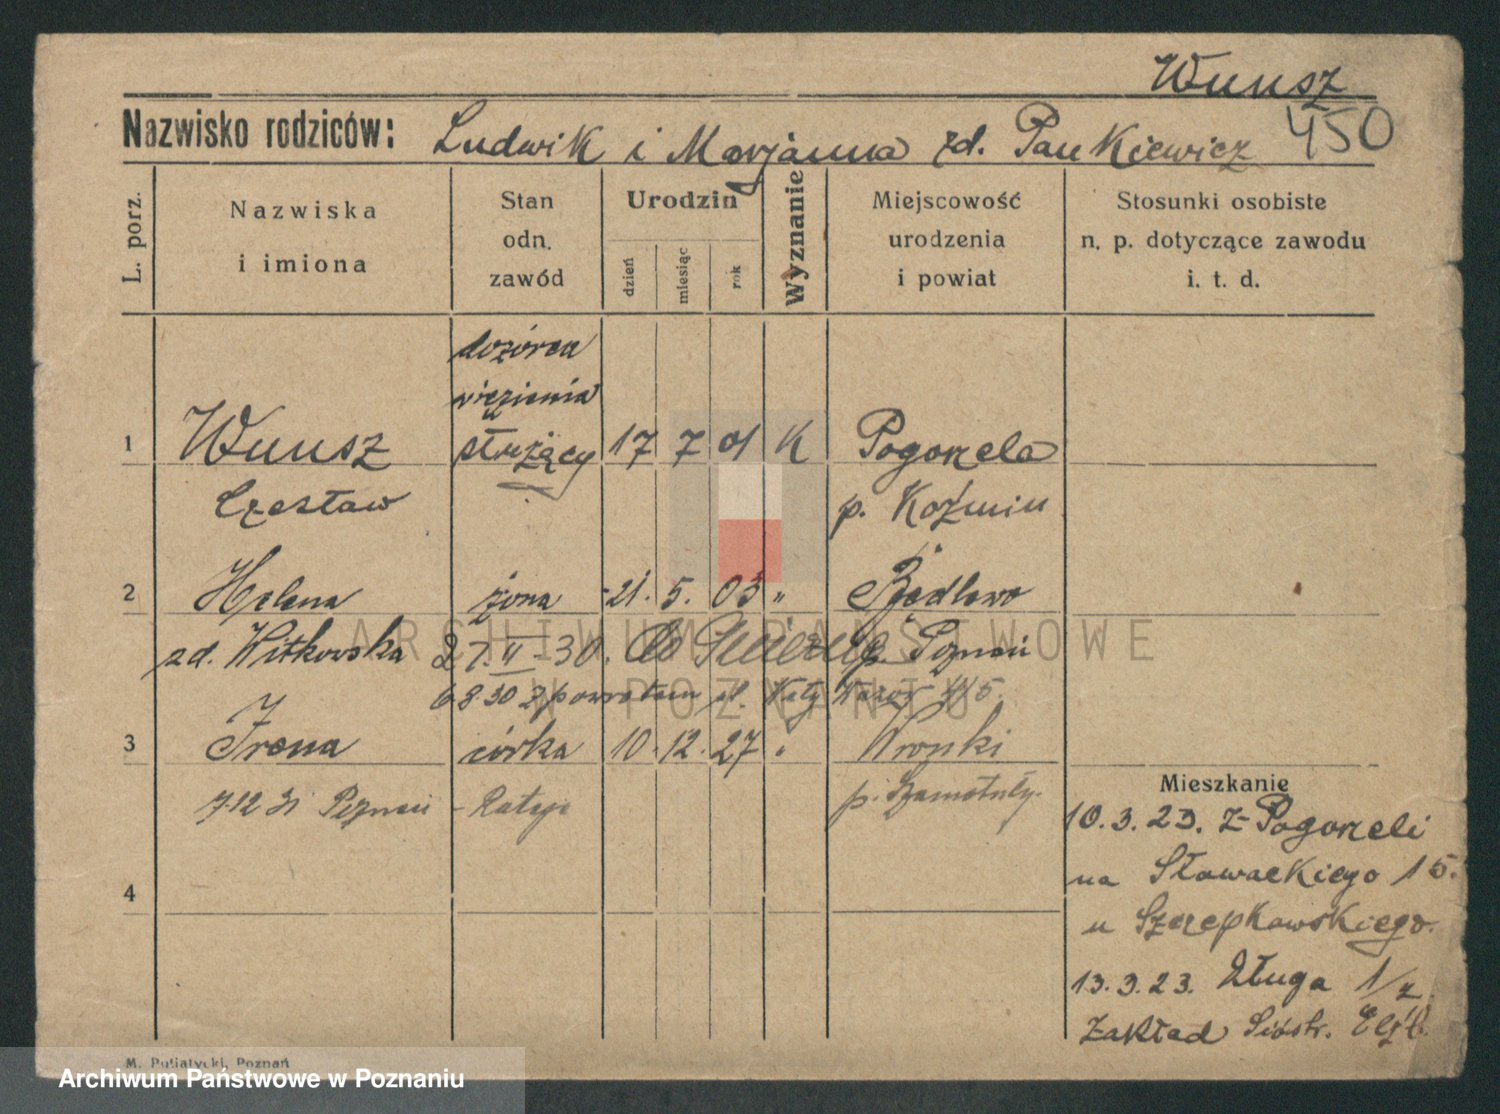 Wunsz
450
Nazwisko rodziców: Ludwik i Marjanna zd. Pankiewicz
L. porz.
Nazwiska i imiona
Stan odn. zawód
Urodzin
dzień miesiąc rok
Wyznanie
Miejscowość urodzenia i powiat
Stosunki osobiste n. p. dotyczące zawodu i. t. d.
dozórca
więzienia
1 Wunsz służący 17 7 01 K Pogorzela
Czesław p. Koźmin
2 Helena żona 21. 5. 03 " Będlewo
zd. Witkowska 27.II-30. do p. Poznań
6 8.30 z powrotem ul.
3 Irena córka 10. 12. 27 " Wronki
7.12 31 Poznań - Rataje p. Szamotuły.
Mieszkanie
10.3.23. z Pogorzeli
na Słowackiego 15.
u Szczepkowskiego.
13.3.23. Długa 1/2
Zakład Sióstr. Elżb.
4
M. Putiatycki, Poznań
ARCHIWUM PAŃSTWOWE
W POZNANIU
Archiwum Państwowe w Poznaniu